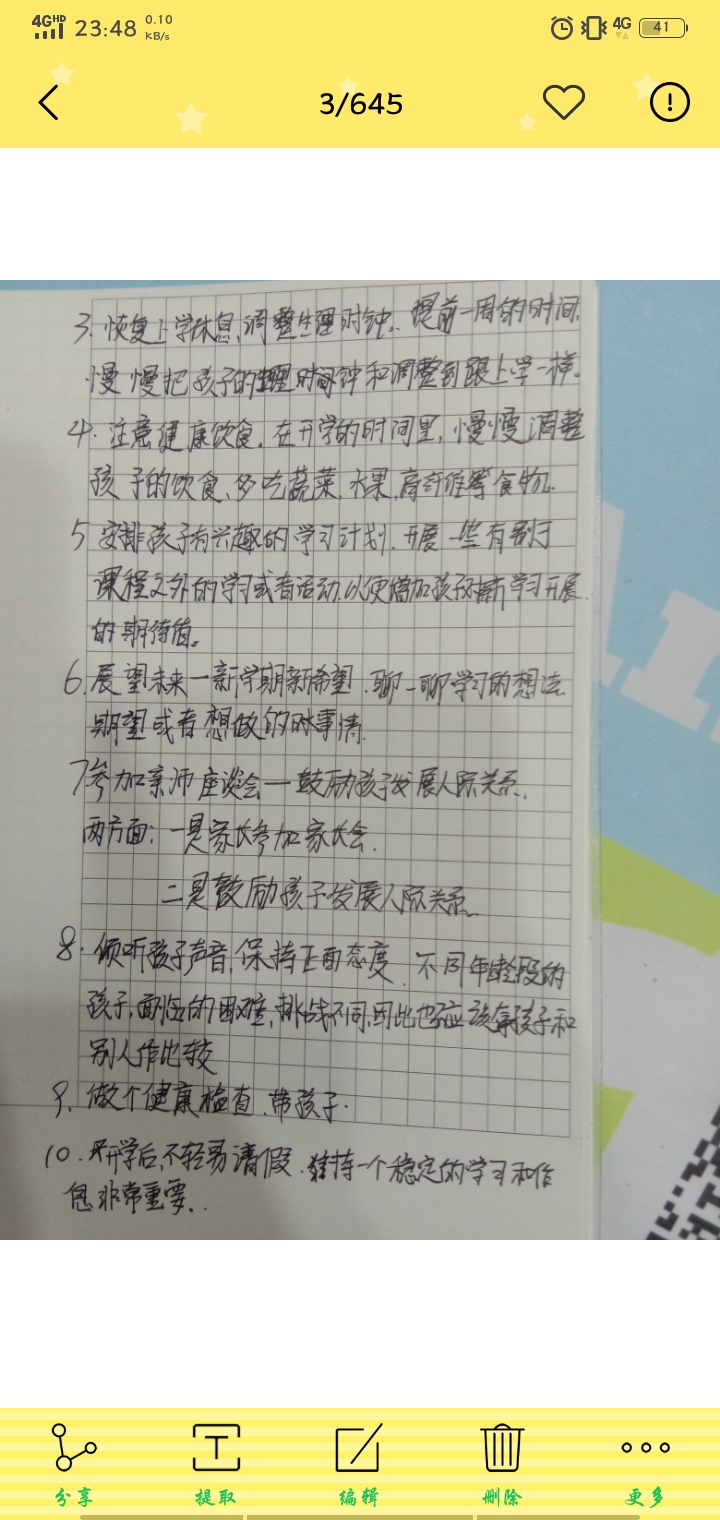 4GHD 23:48 0.10 KB/s 4G 41
3/645
3.恢复上学休息,调整生理时钟。提前一周的时间,
慢慢把孩子的生理时间钟和调整到跟上学一样。
4.注意健康饮食.在开学的时间里,慢慢调整
孩子的饮食,多吃蔬菜,水果,高纤维等食物。
5安排孩子有兴趣的学习计划.开展一些有别于
课程之外的学习或者活动,以便增加孩子对新学习开展
的期待值。
6.展望未来一新学期新希望.聊一聊学习的想法.
期望或者想做的事情.
7参加亲师座谈会一鼓励孩子发展人际关系.
两方面:一是家长参加家长会.
二是鼓励孩子发展人际关系.
8.倾听孩子声音,保持正面态度.不同年龄段的
孩子,面临的困难,挑战不同,因此也应该拿孩子和
别人作比较
9.做个健康检查.带孩子.
10.开学后,不轻易请假.维持一个稳定的学习和作
息非常重要..
分享 提取 编辑 删除 更多